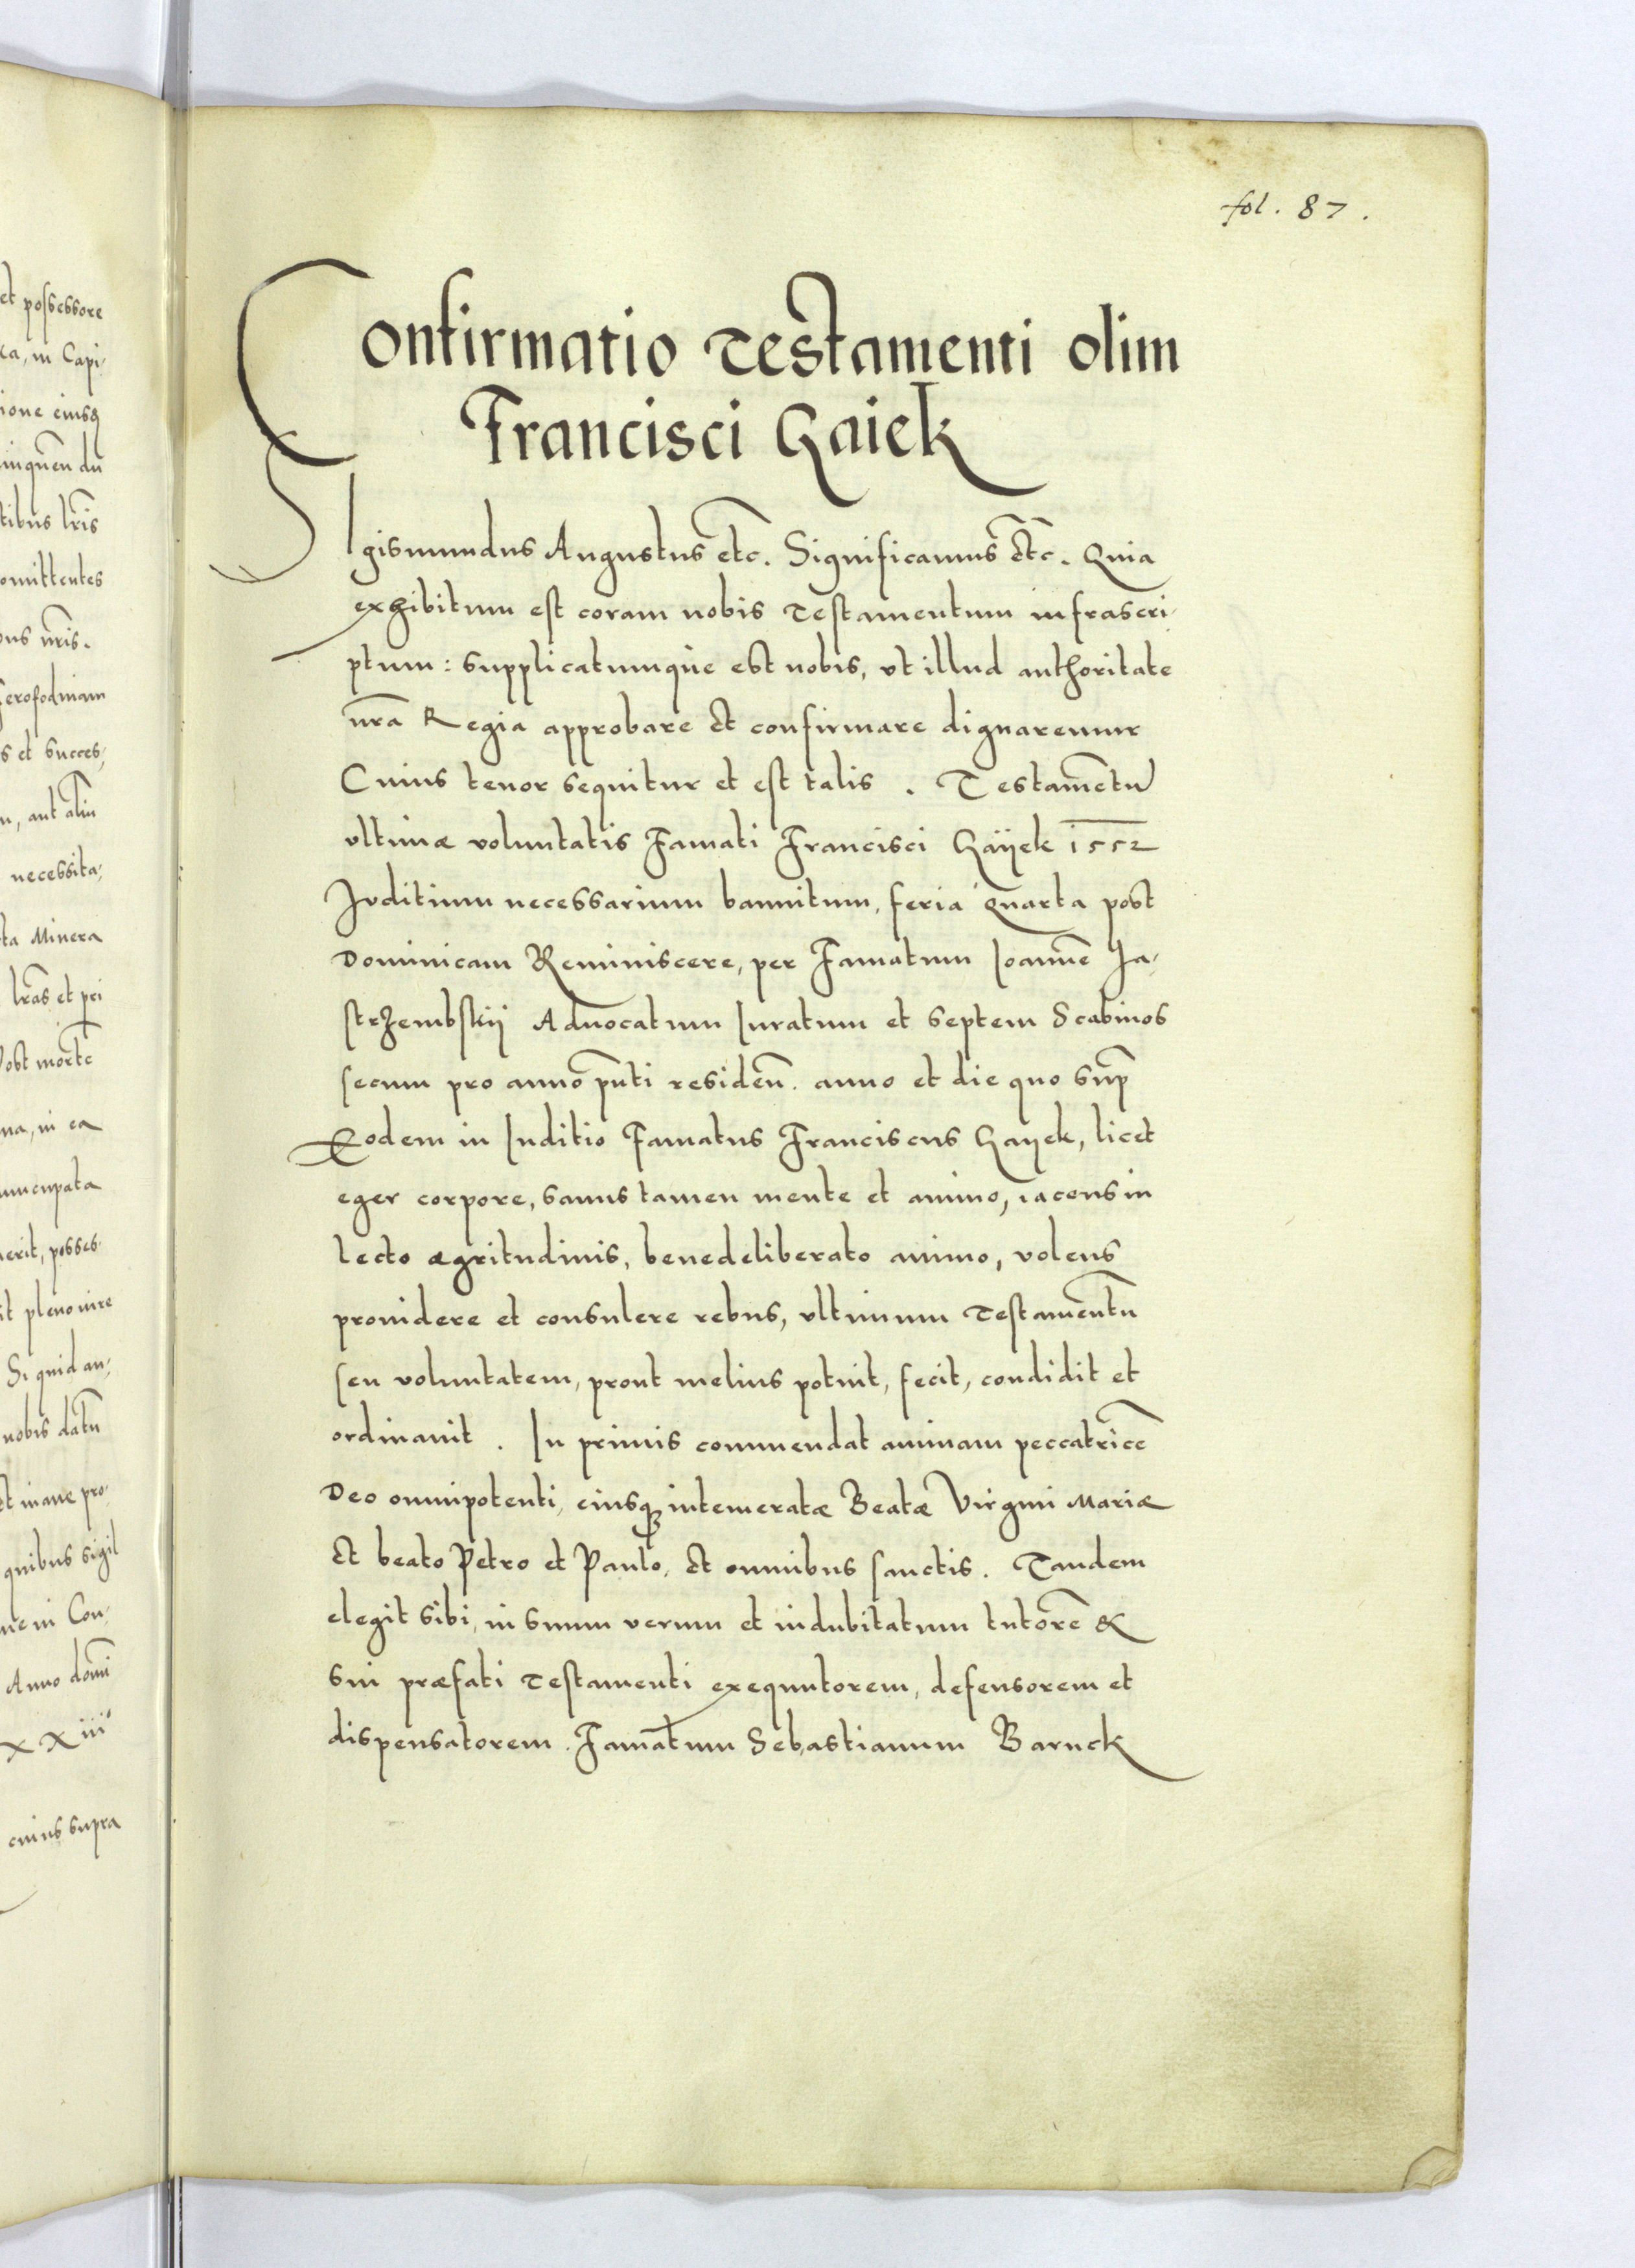 et possessore
ca, in Capi-
ione eiusq
inquen du
tibus lr̃is
omittentes
ous nr̃is.
serofodinam
s et succes-
n, aut aliu
necessita-
ta Minera
lr̃as et pri
Post morte͂
na, in ea
nuncupata
erit, posses-
it pleno iure
Si quid an-
nobis datu͂
et inane pro-
quibus sigil
ne in Con-
Anno domi͂
xxiii
cuius supra
fol. 87.
Confirmatio Testamenti olim
Francisci Gaiek
SIgismundus Augustus etc. Significamus etc. Quia
exhibitum est coram nobis Testamentum infrascri-
ptum: supplicatumque est nobis, vt illud authoritate
nr̃a Regia approbare et confirmare dignaremur
Cuius tenor sequitur et est talis. Testamentu͂
vltimæ voluntatis Famati Francisci Gaÿek 1552
Iuditium necessarium bannitum, feria Quarta post
Dominicam Reminiscere, per Famatum Ioanne͂ Ja-
strzembskÿ Aduocatum Iuratum et septem Scabinos
secum pro anno pñti residen͂. anno et die quo sup͂
Eodem in Iuditio Famatus Franciscus Gayek, licet
eger corpore, sanus tamen mente et animo, iacens in
lecto ægritudinis, benedeliberato animo, volens
prouidere et consulere rebus, vltimum Testamentu͂
seu voluntatem, prout melius potuit, fecit, condidit et
ordinauit. In primis commendat animam peccatrice͂
Deo omnipotenti, eiusq; intemeratæ Beatæ Virgini Mariæ
et beato Petro et Paulo, et omnibus sanctis. Tandem
elegit sibi, in suum verum et indubitatum tutore͂ &
sui præfati Testamenti exequutorem, defensorem et
dispensatorem. Famatum Sebastianum Baruck